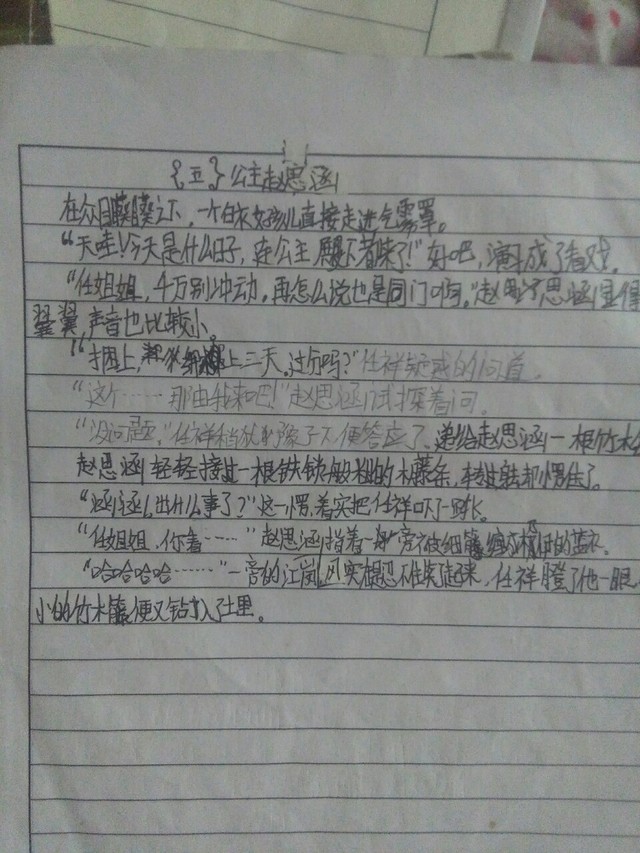 {五}公主赵思涵
在众目睽睽之下，一个白衣女孩儿直接走进气雾罩。
“天哇！今天是什么日子，连公主殿下都来了！”好吧，演斗成了看戏。
“任姐姐，千万别冲动，再怎么说也是同门啊。”赵思涵显得
翼翼，声音也比较小。
“捆上三天，过分吗？”任祥疑惑的问道。
“这个……那由我来吧！”赵思涵试探着问。
“没问题，”任祥稍犹豫了下，便答应了、递给赵思涵一根竹木
赵思涵轻轻接过一根铁锁般粗的木藤条，转过身却愣住了。
“涵涵，出什么事了？”这一愣，着实把任祥吓了一跳。
“任姐姐，你看……”赵思涵指着一旁被细藤缠成的蓝衣
“哈哈哈哈……”一旁的江岚风实在忍不住笑起来，任祥瞪了他一眼
小的竹木藤便又钻入了土里。